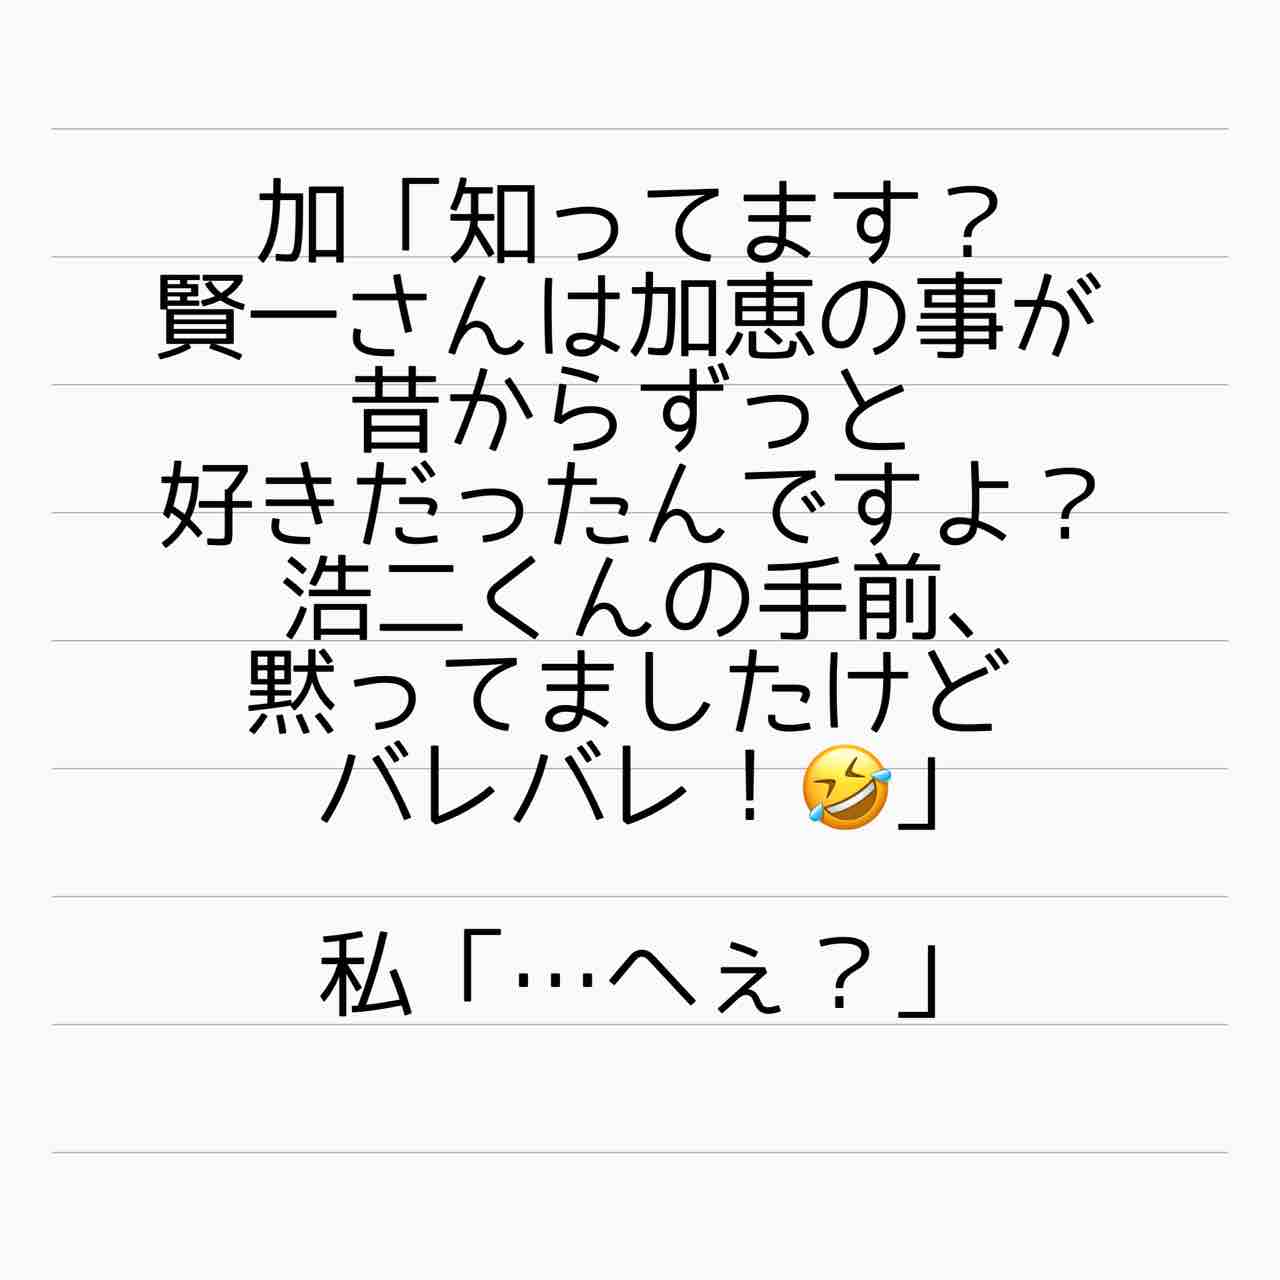 加「知ってます？
賢一さんは加恵の事が
昔からずっと
好きだったんですよ？
浩二くんの手前、
黙ってましたけど
バレバレ！🤣」
私「…へぇ？」